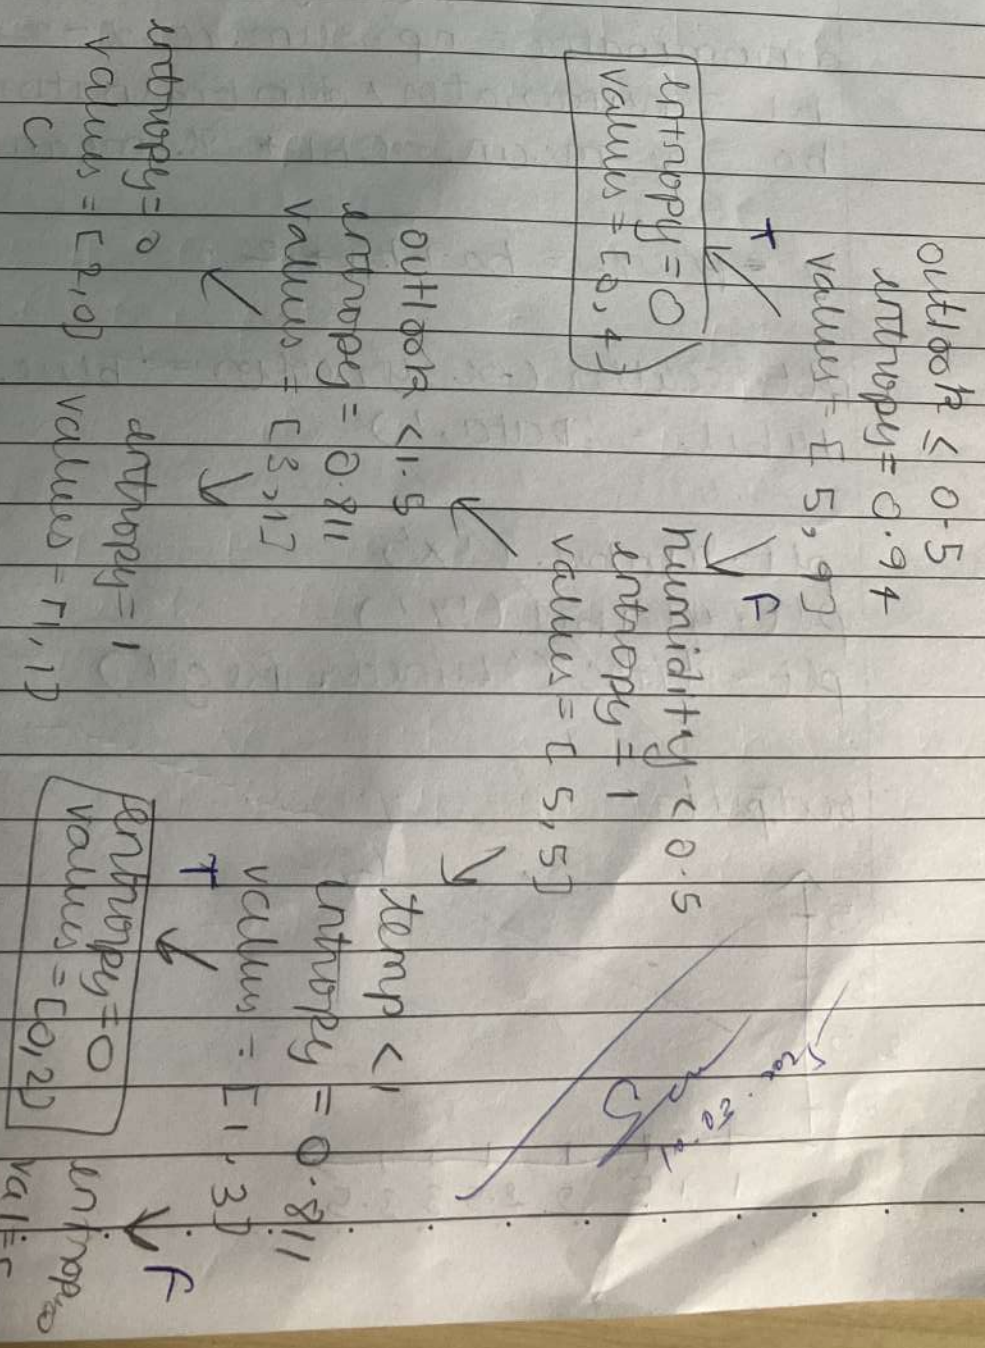 outlook ≤ 0.5
entropy = 0.94
values = [5, 9]
T
F
entropy = 0
values = [0, 4]
humidity < 0.5
entropy = 1
values = [5, 5]
outlook < 1.5
entropy = 0.811
values = [3, 1]
temp < 1
entropy = 0.811
values = [1, 3]
T
F
entropy = 0
values = [2, 0]
C
entropy = 1
values = [1, 1]
entropy = 0
values = [0, 2]
entropy
val = [